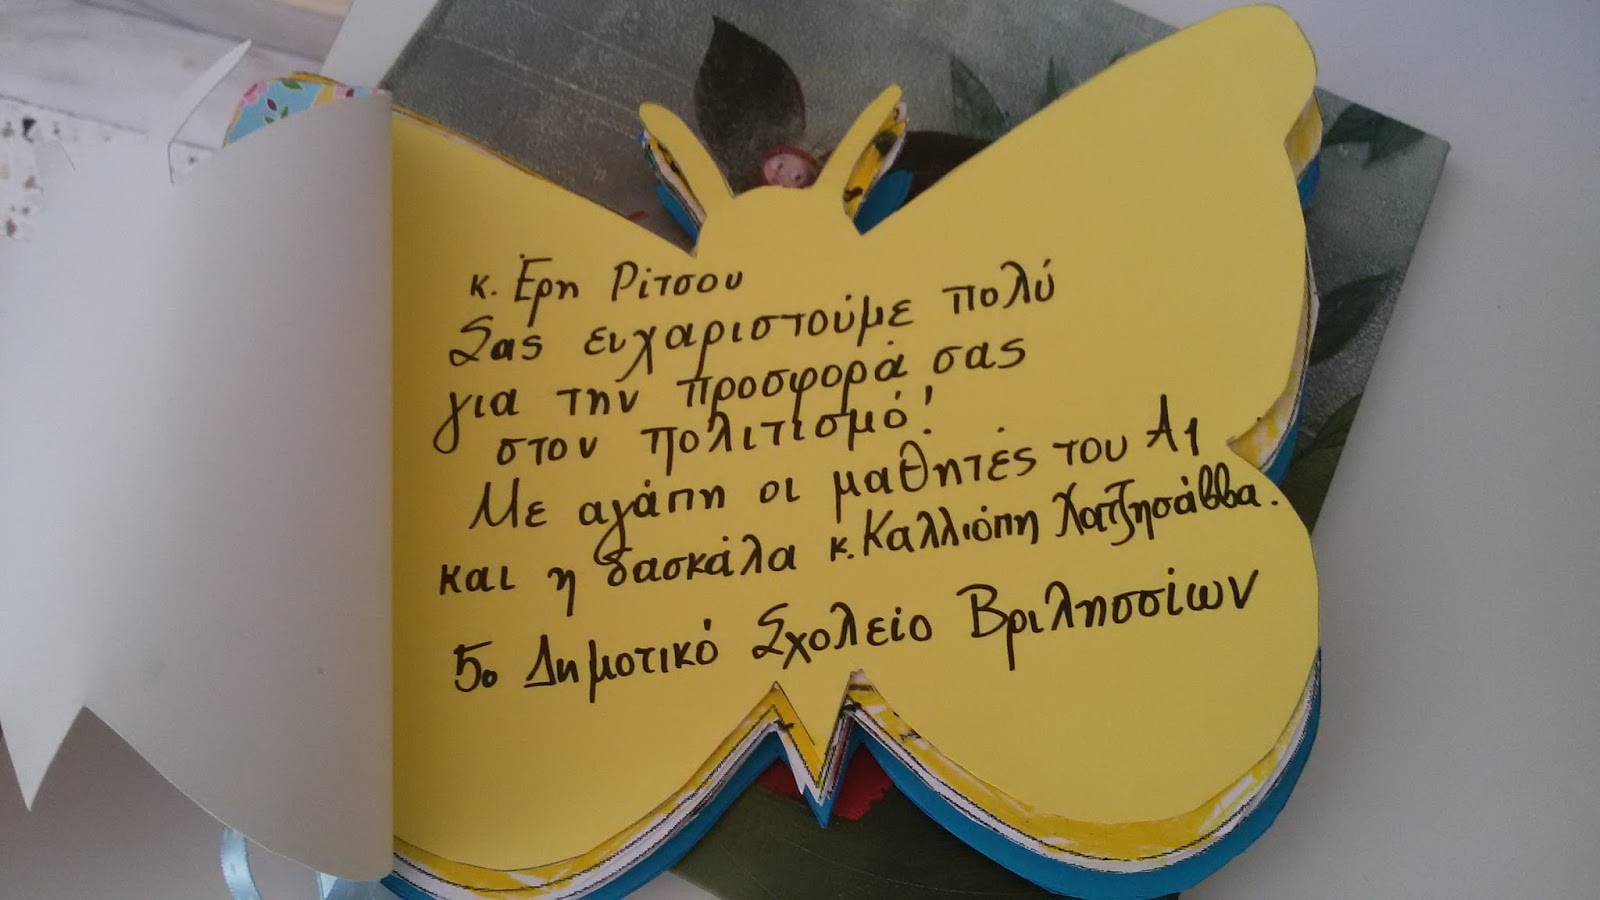 κ. Έρη Ρίτσου
Σας ευχαριστούμε πολύ
για την προσφορά σας
στον πολιτισμό!
Με αγάπη οι μαθητές του Α1
και η δασκάλα κ. Καλλιόπη Χατζησάββα.
5ο Δημοτικό Σχολείο Βριλησσίων